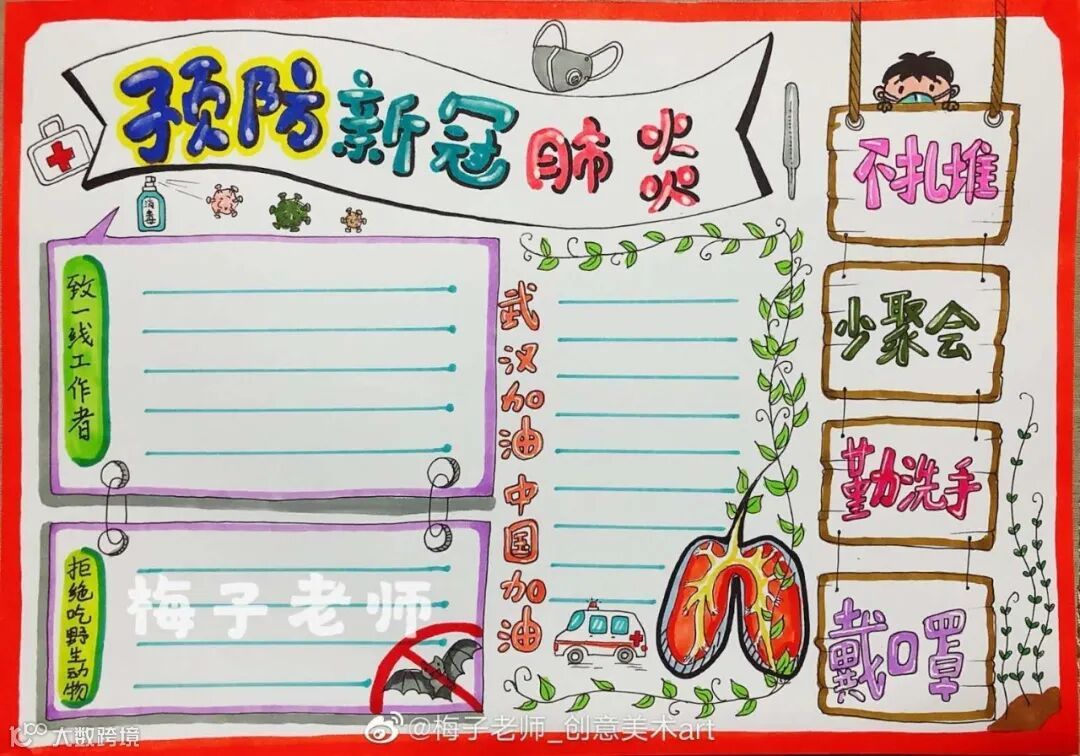 预防新冠肺炎
消毒
致一线工作者
武汉加油中国加油
拒绝吃野生动物
不扎堆
少聚会
勤洗手
戴口罩
梅子老师
@梅子老师_创意美术art
大数跨境